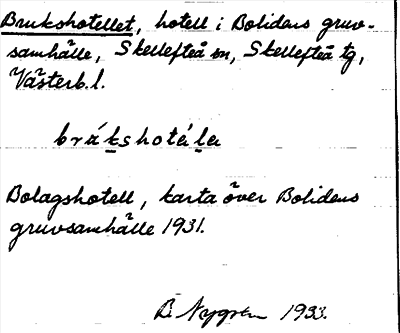 Brukshotellet, hotell i Bolidens gruv-
samhälle, Skellefteå sn, Skellefteå tg,
Västerb. l.
brákshotéla
Bolagshotell, karta över Bolidens
gruvsamhälle 1931.
B. Nygren 1933.